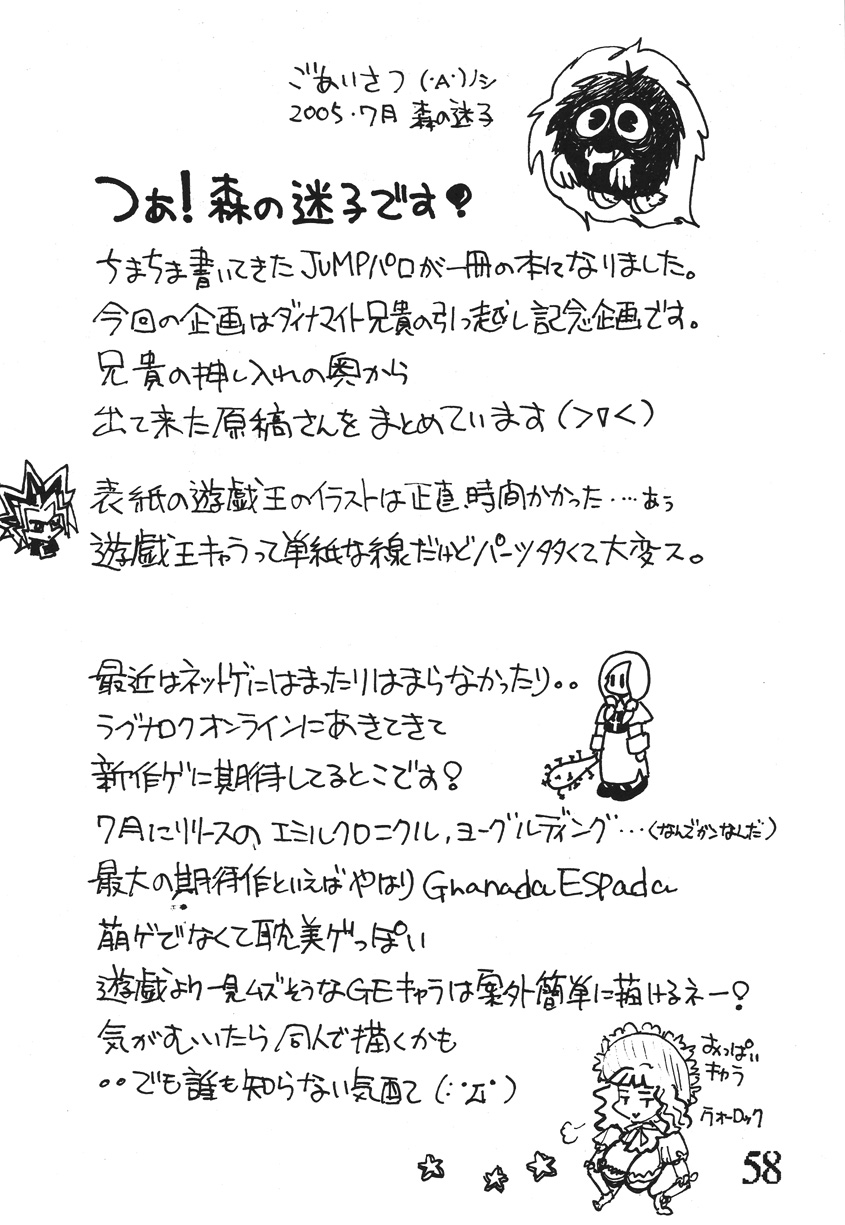 ごあいさつ (・A・)ノシ
2005・7月 森の迷子
つぁ！森の迷子です？
ちまちま書いてきたJUMPパロが一冊の本になりました。
今回の企画はダイナマイト兄貴の引っ越し記念企画です。
兄貴の押し入れの奥から
出て来た原稿さんをまとめています(>∇<)
表紙の遊戯王のイラストは正直時間かかった・…あぅ
遊戯王キャラって単紙な線だけどパーツ多くて大変ス。
最近はネットゲにはまったりはまらなかったり。。
ラグナロクオンラインにあきてきて
新作ゲに期待してるとこです？
7月にリリースの、エミルクロニクル,ヨーグルディング…(なんでかんなんだ)
最大の期待作といえばやはりGranada ESpada
萌ゲでなくて耽美ゲっぽい
遊戯より一見ムズそうなGEキャラは案外簡単に描けるネー？
気がむいたら同人で描くかも
・・でも誰も知らない気配て(；゚Д゚)
おっぱい
キャラ
ウォーロック
58